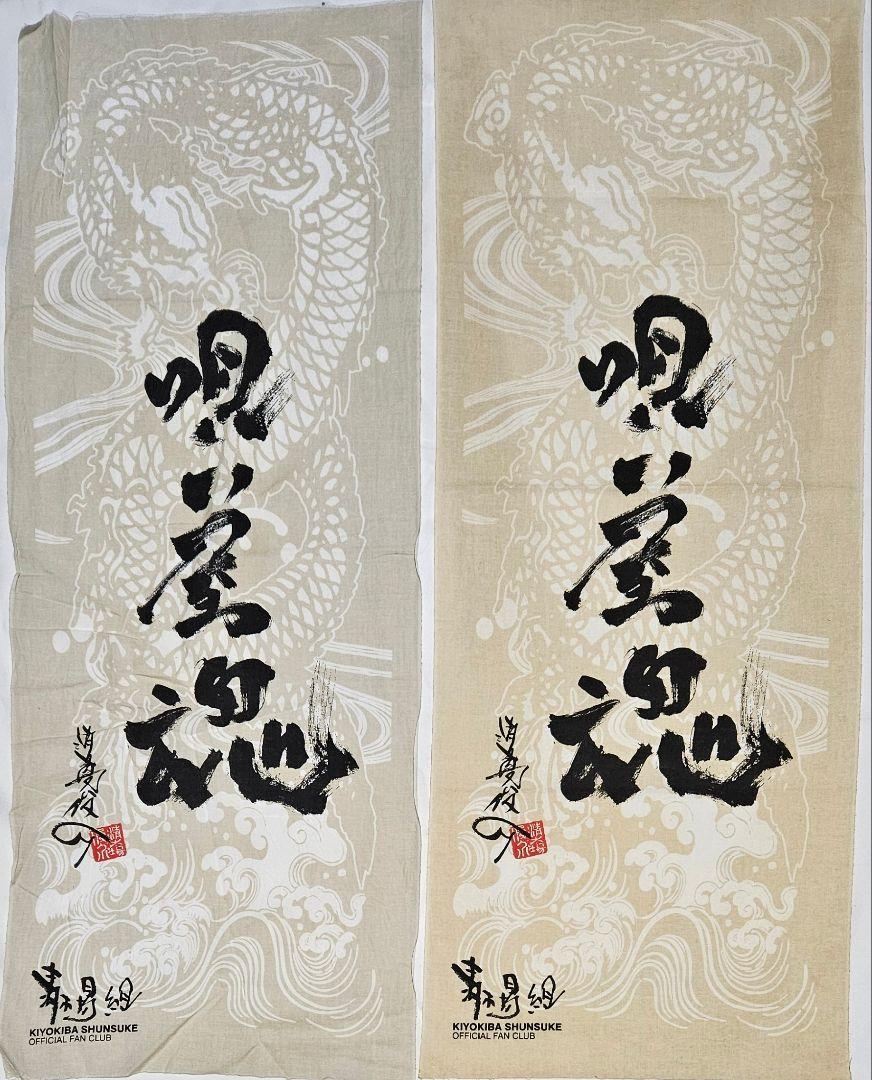 唄い屋魂
清木場俊介
清木場組
KIYOKIBA SHUNSUKE
OFFICIAL FAN CLUB
唄い屋魂
清木場俊介
清木場組
KIYOKIBA SHUNSUKE
OFFICIAL FAN CLUB